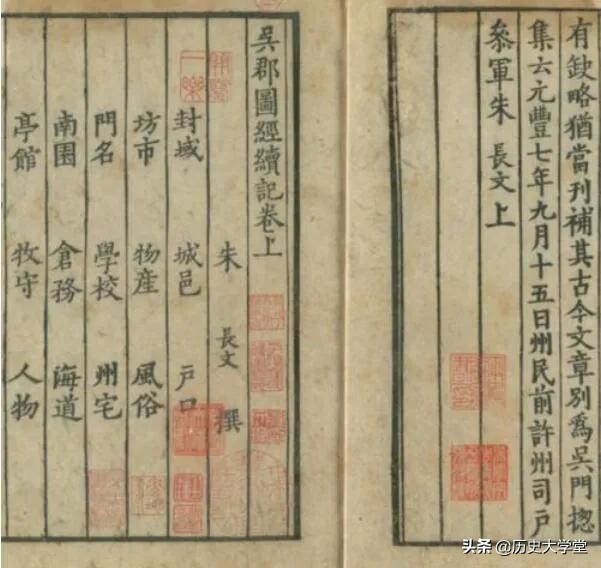 有缺略猶當刊補其古今文章別爲吳門揔
集云元豐七年九月十五日州民前許州司戶
叅軍朱 長文 上
吳郡圖經續記卷上
朱 長文 撰
封域 城邑 戶口
坊市 物產 風俗
門名 學校 州宅
南園 倉務 海道
亭館 牧守 人物
头条 @历史大学堂